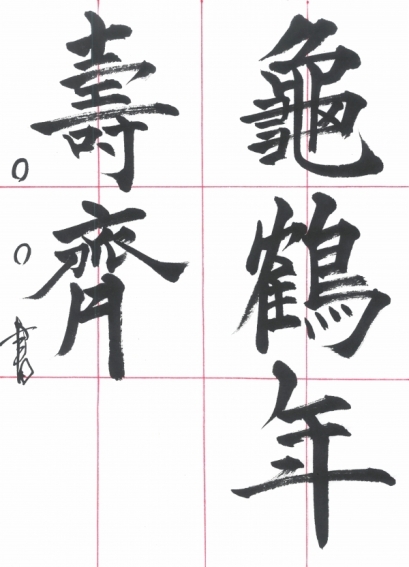 龜鶴年
壽齊
○○書